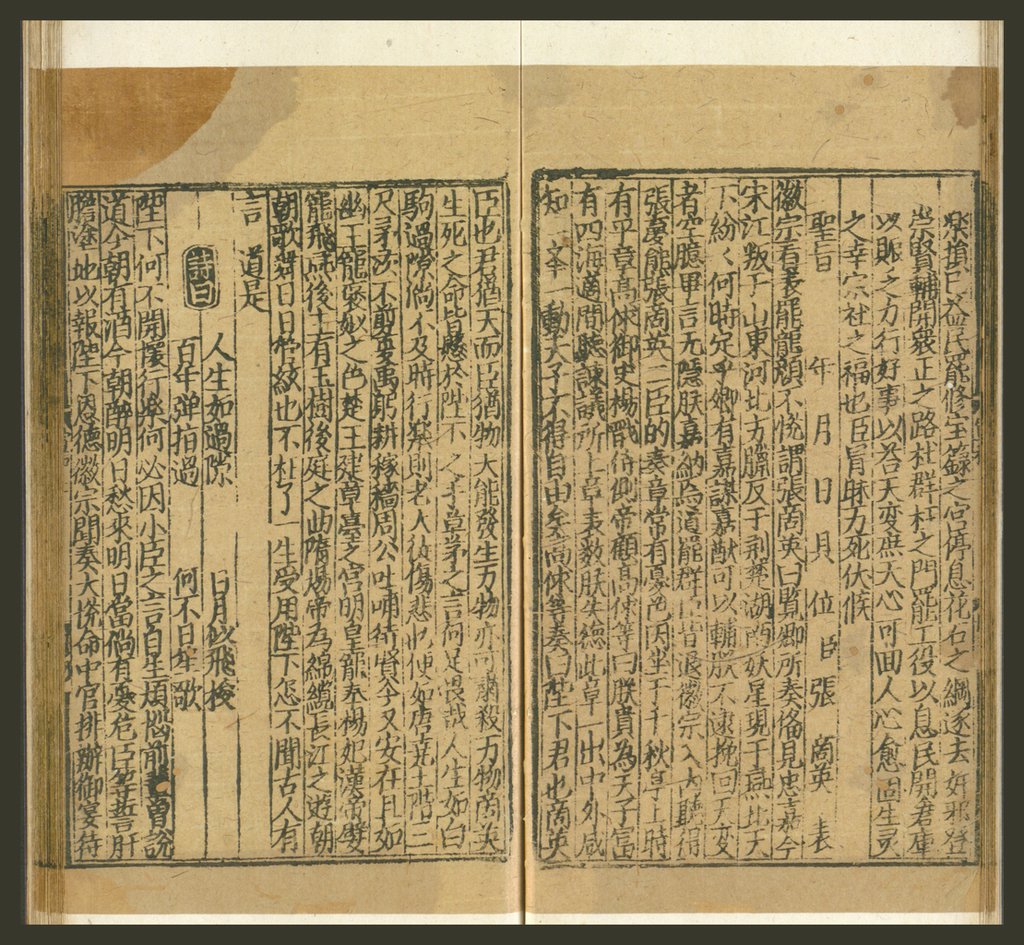 樂損己益民罷修宝籙之宮停息花石之綱逐去奸邪登
崇賢輔開衆正之路杜群枉之門罷工役以息民開君庫
以賑乏力行好事以荅天变庶天心可回人心愈固生灵
之幸宗社之福也臣冒昧万死伏候
聖旨 年 月 日 具 位 臣 張 啇英 表
徽宗看表罷龍顔不悦謂張啇英曰覧卿所奏俻見忠嘉今
宋江叛于山東河北方臘反于荆楚湖南妖星現于燕北天
下紛々何時定乎卿有嘉謀嘉猷可以輔朕不逮挽回天变
者空臆畢言无隱朕嘉納焉道罷群臣皆退徽宗入内聽得
張商英二臣的奏章常有憂色因坐于千秋亭上時
有平章髙俅御史楊戩侍側帝顧髙俅等曰朕貴為天子富
有四海適間聽諫議所上章表数朕失德此章一出中外咸
知一举一動天子不得自由矣髙俅等奏曰陛下君也啇英
臣也君猶天而臣猶物大能發生万物亦可肅殺万物啇英
生死之命皆懸於陛下之手草茅之言何足畏哉人生如白
駒過隙倘不及時行樂則老大徒傷悲也便如唐尭土階三
尺茅茨不剪夏禹躬耕稼穡周公吐哺待賢今又安在且如
幽王寵褒姒之色楚王建章臺之宫明皇寵奉楊妃漢帝嬖
寵飛燕後主有玉樹後庭之曲隋煬帝為錦纜長江之遊朝
朝歌舞日日管絃也不枉了一生受用陛下怎不聞古人有
言道是
詩曰
人生如過隙 日月似飛梭
百年弹指過 何不日笙歌
陛下何不開懷行樂何必因小臣之言自生煩惱前輩曽説
道今朝有酒今朝醉明日愁來明日當倘有憂危臣等誓肝
膽塗地以報陛下恩德徽宗聞奏大悦命中官排辦御宴待